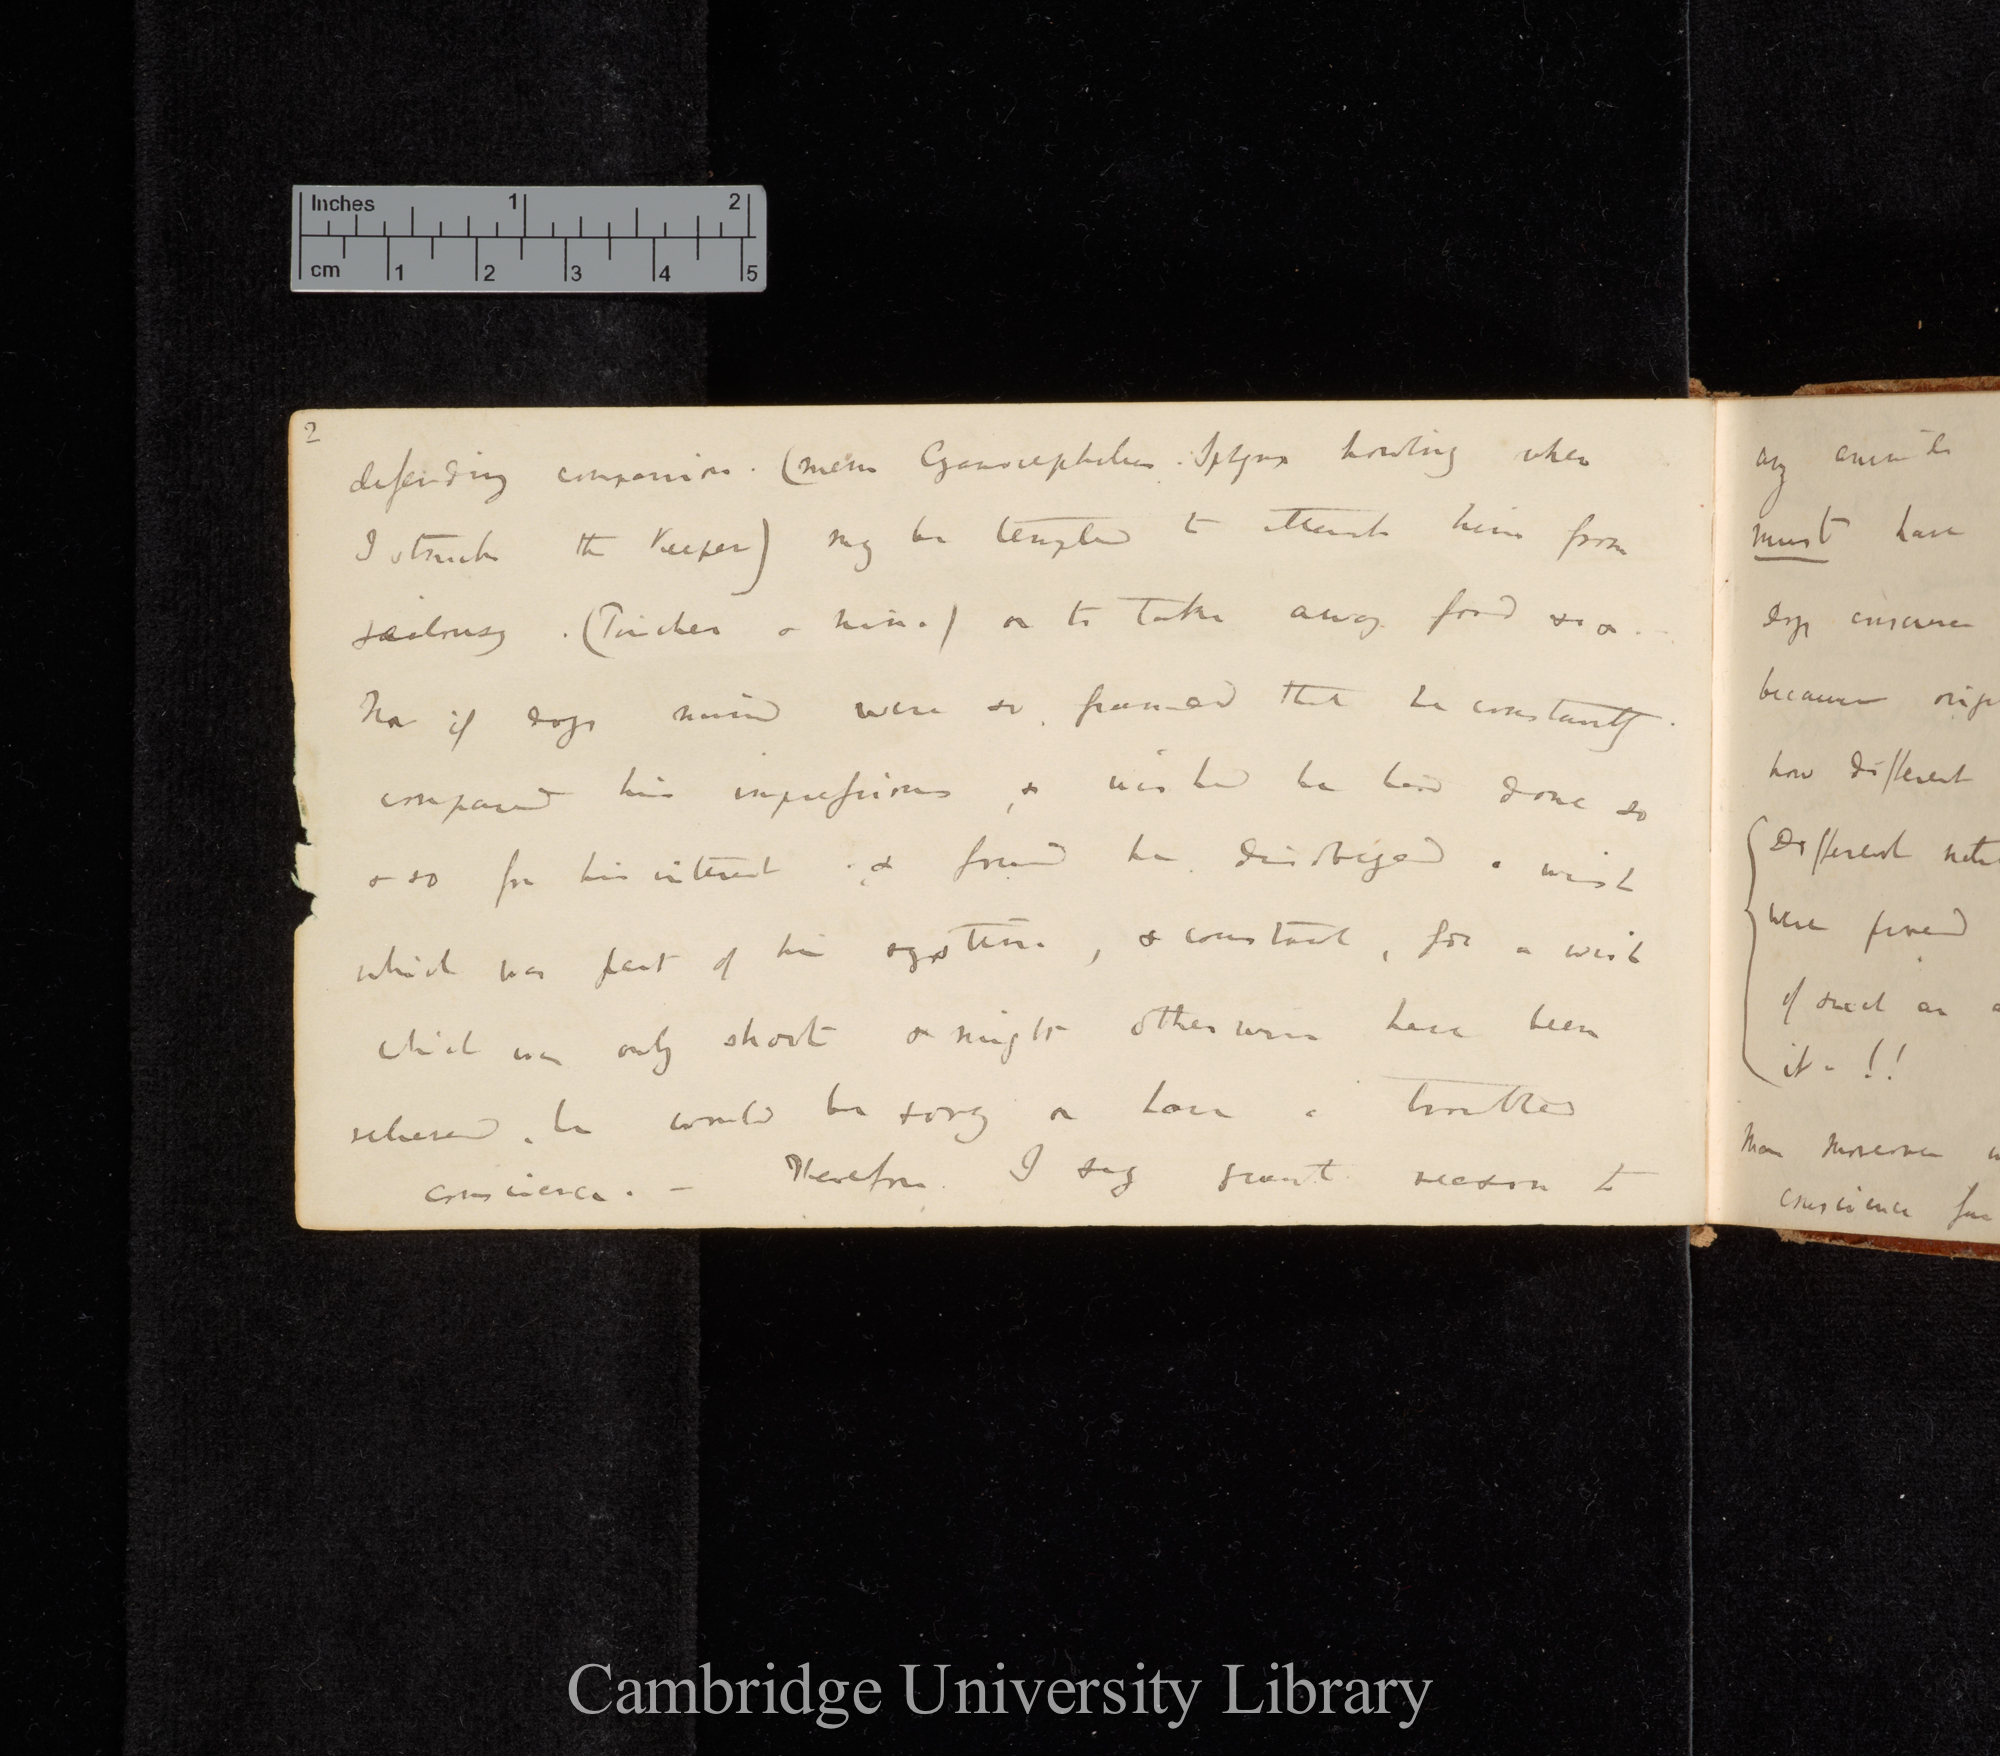 Inches 1 2
cm 1 2 3 4 5
2
defending companion. (mem Cyanocephalus Sphynx howling when
I struck the Keeper) may be tempted to attack him from
jealousy. (Pincher & Nina) or to take away food &c &c.
Now if dogs mind were so framed that he constantly
compared his impressions, & wished he had done so
& so for his interest, & found he disobeyed a wish
which was part of his system, & constant, for a wish
which was only short & might otherwise have been
relieved, he would be sorry or have a troubled
conscience. — Therefore I say grant reason to
any animal
must have
dogs conscience
because
how different
different
were
of such an
it. !!
Man moreover
conscience
Cambridge University Library